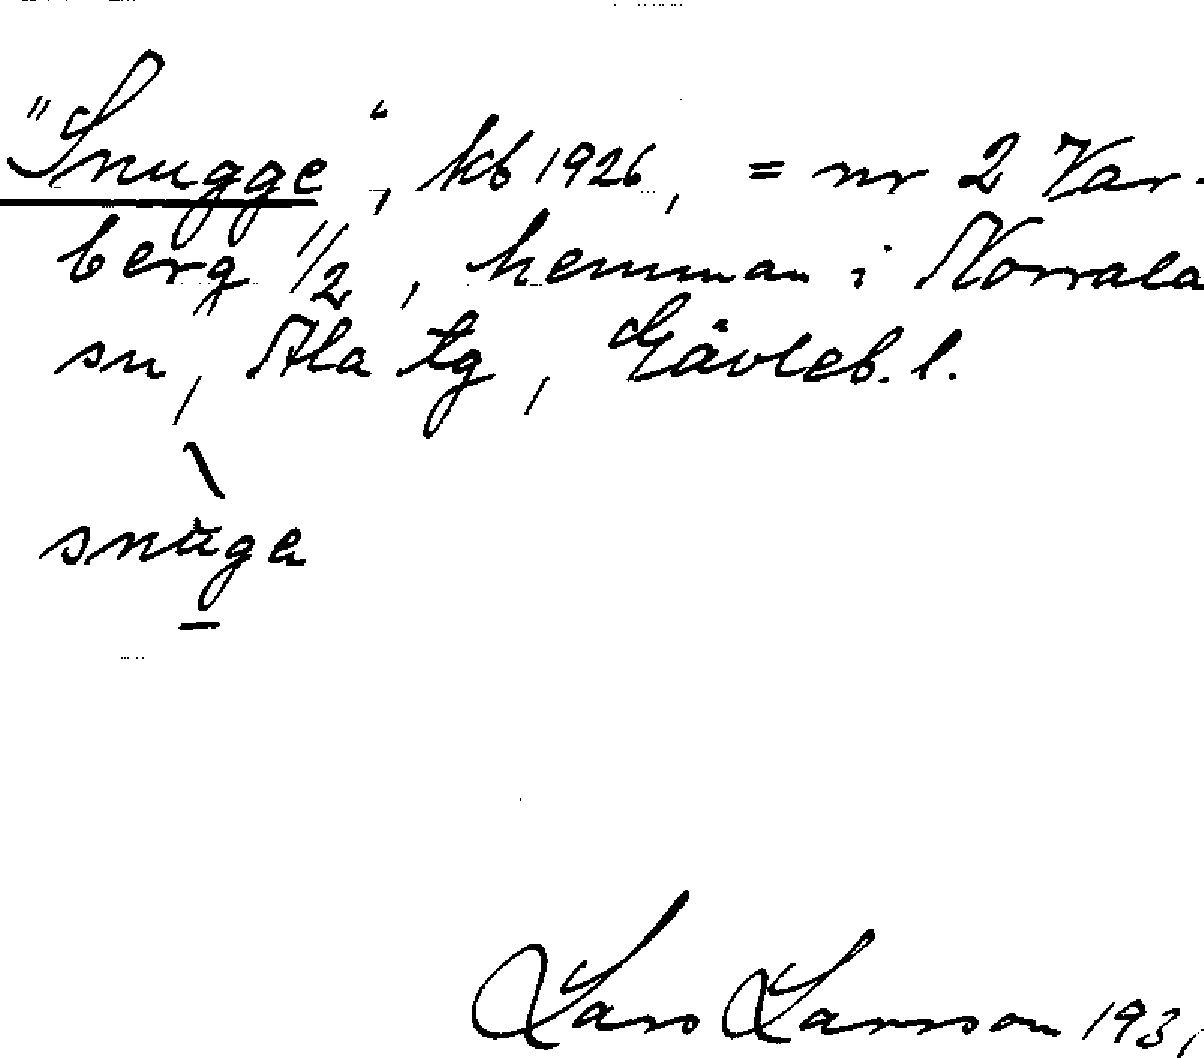 "Snugge", kb 1926, = nr 2 Var-
berg 1/2, hemman i Norrala
sn, Ala tg, Gävleb. l.
Lars Larsson 193